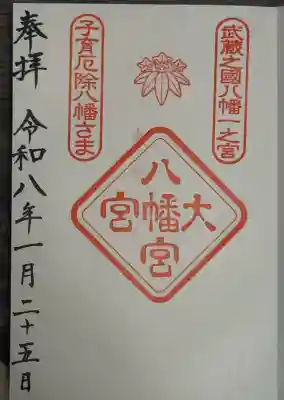 武蔵之國八幡一之宮
大
八幡宮
宮
子育厄除八幡さま
奉拝 令和八年一月二十五日